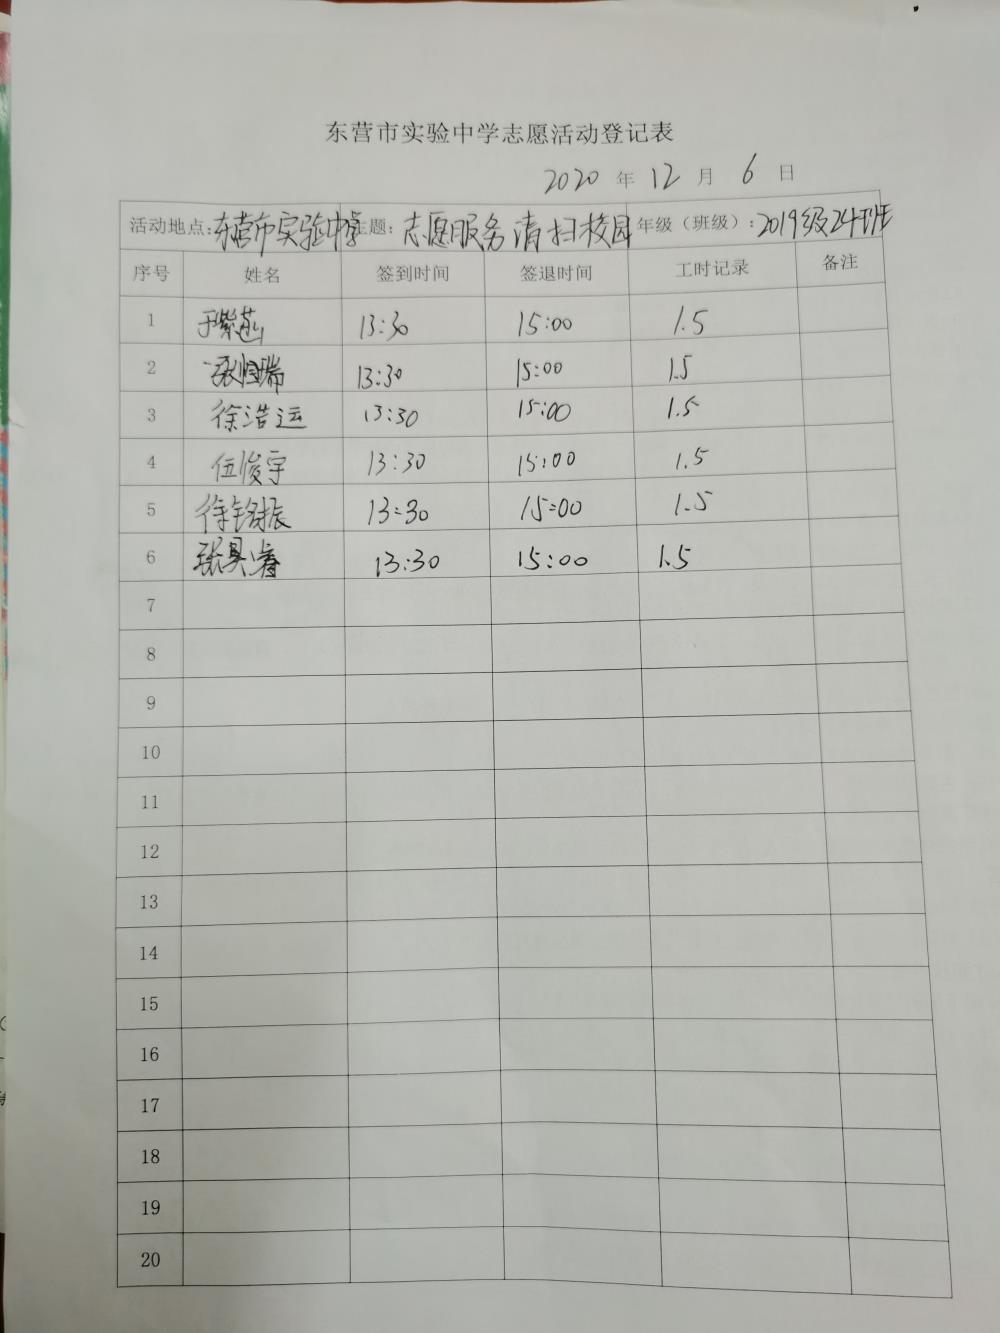 东营市实验中学志愿活动登记表
2020 年 12 月 6 日
活动地点：东营市实验中学 主题：志愿服务 清扫校园 年级（班级）：2019级24班
序号 姓名 签到时间 签退时间 工时记录 备注
1 于紫 13:30 15:00 1.5
2 张 瑞 13:30 15:00 1.5
3 徐浩运 13:30 15:00 1.5
4 伍俊宇 13:30 15:00 1.5
5 徐铭振 13:30 15:00 1.5
6 张 睿 13:30 15:00 1.5
7
8
9
10
11
12
13
14
15
16
17
18
19
20